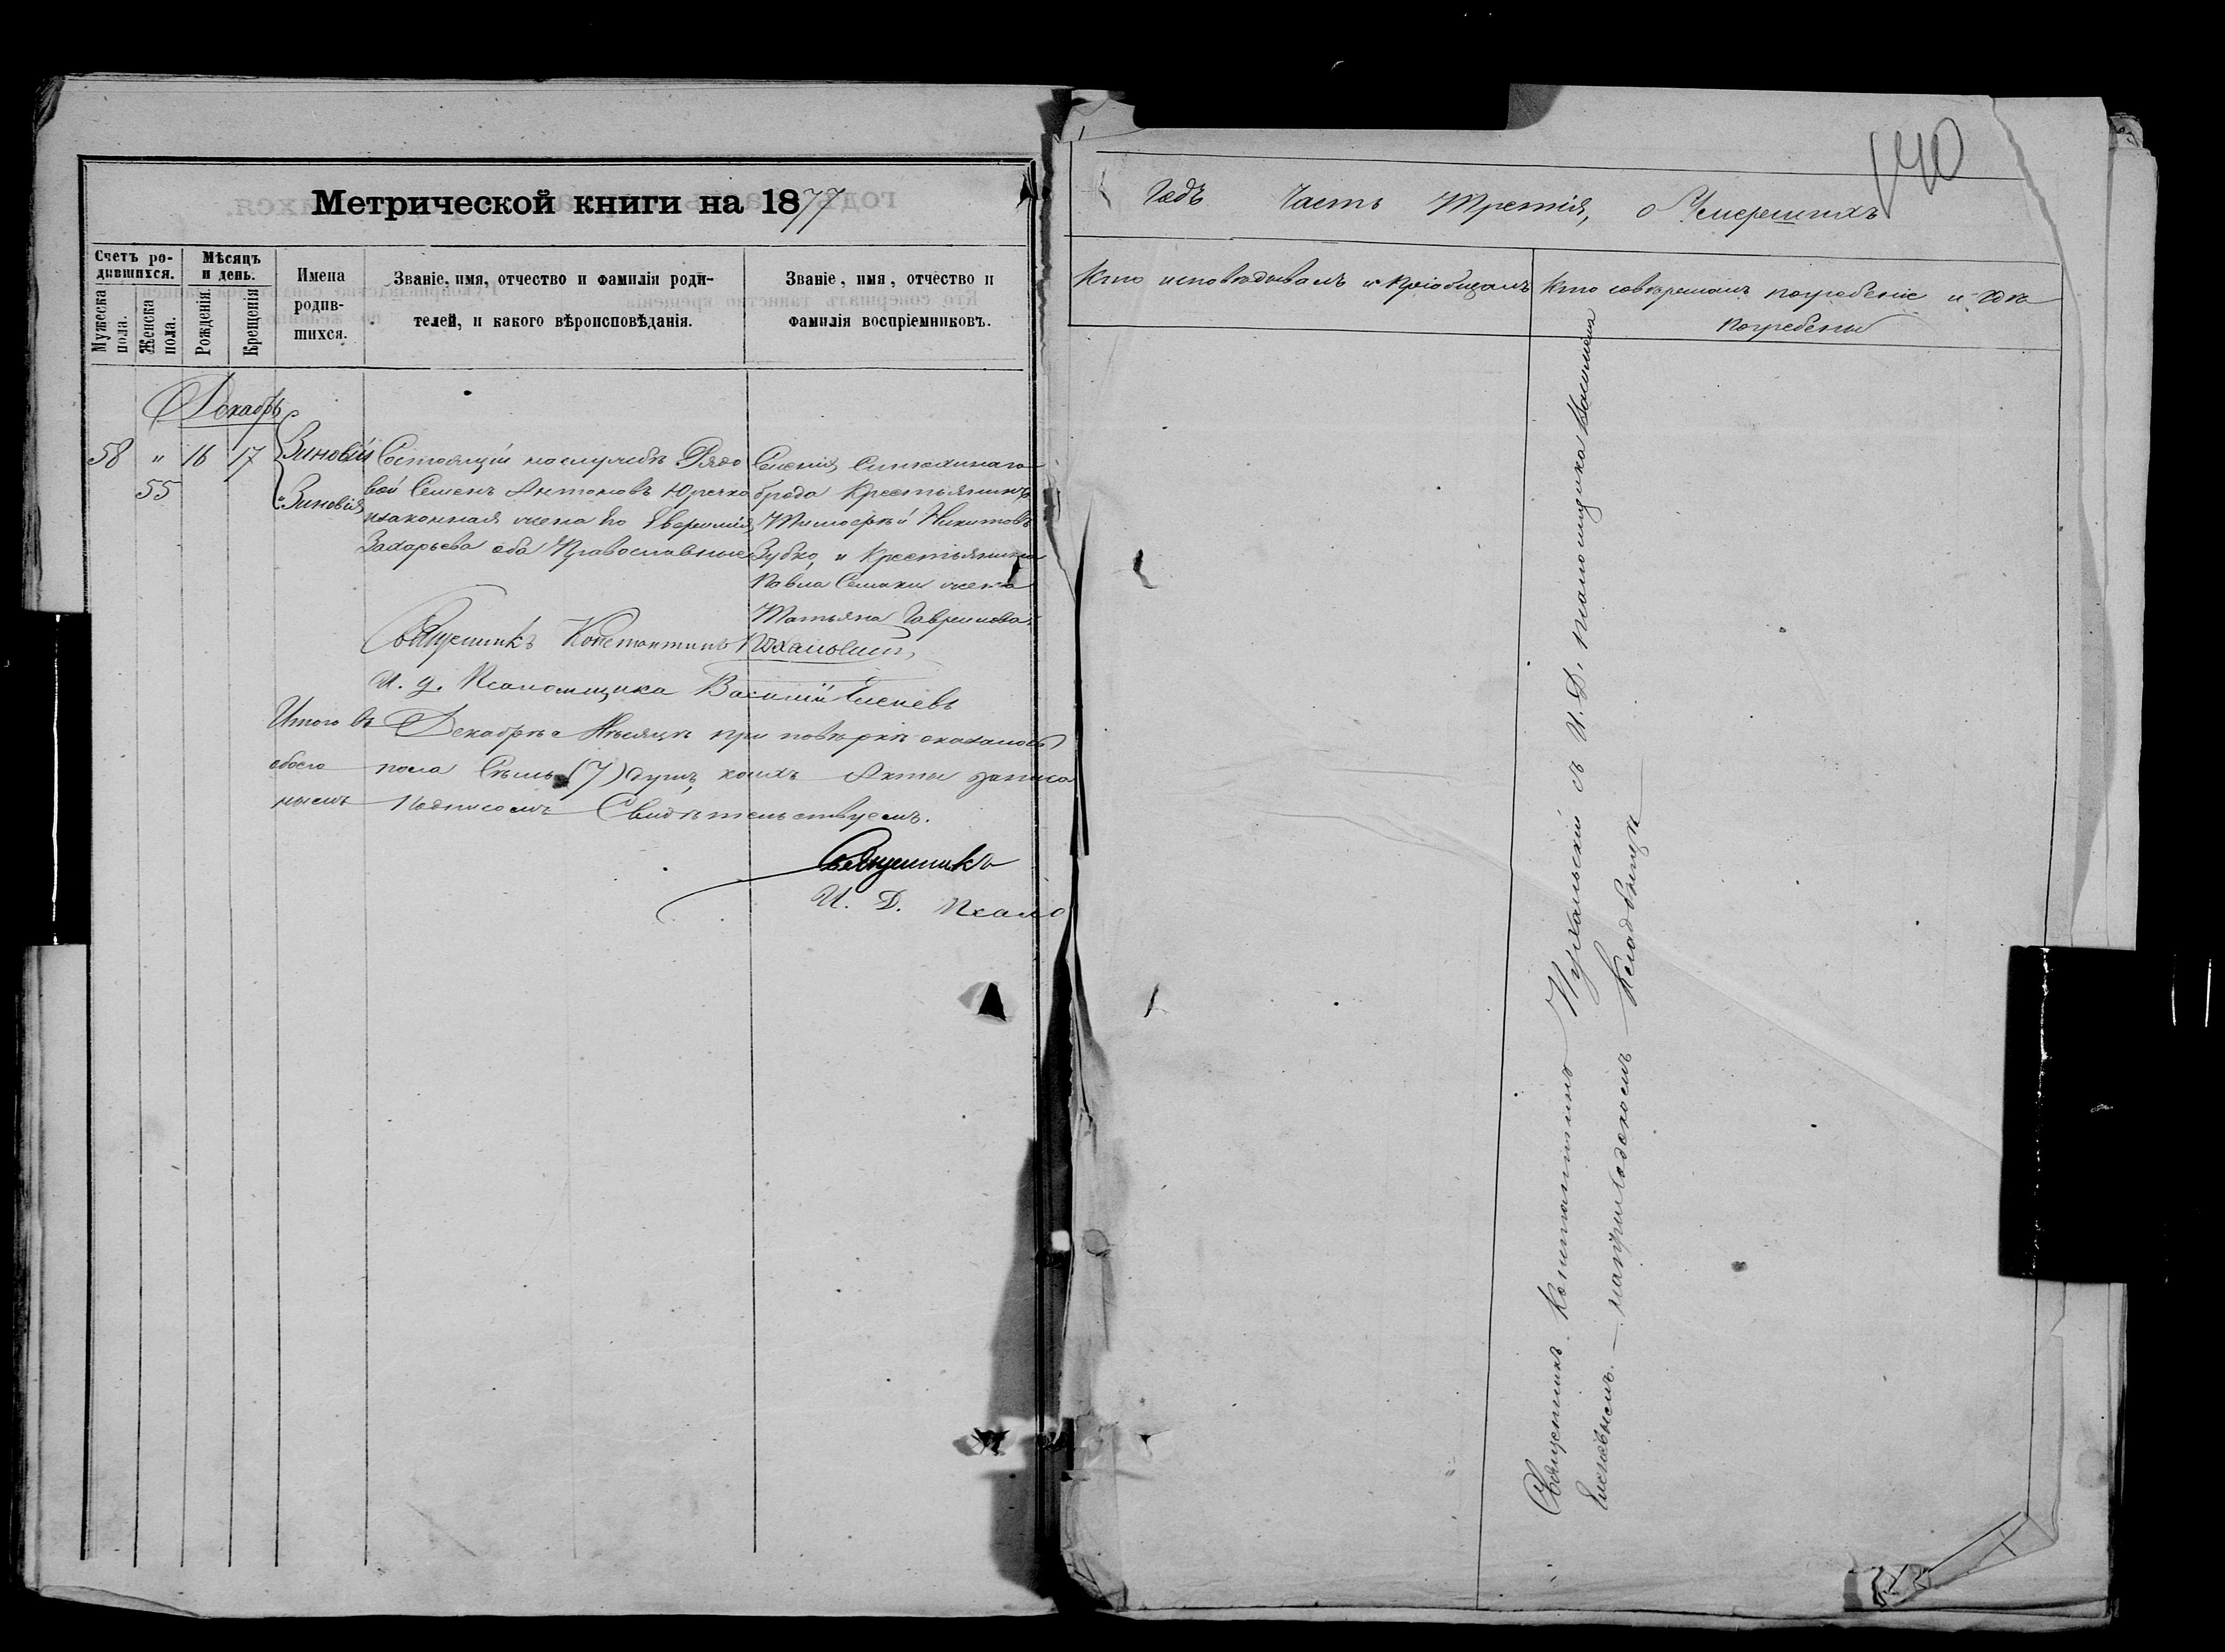 Метрической книги на 1877
Счетъ родившихся.
Мужеска пола.
Женска пола.
Мѣсяцъ и день.
Рожденія.
Крещенія.
Имена родившихся.
Званіе, имя, отчество и фамилія роди-
телей, и какого вѣроисповѣданія.
Званіе, имя, отчество и
фамилія воспріемниковъ.
Декабрь
58 " 16 17 Зиновій
55 Зиновія
Состоящій на службѣ Рядо
вой Семенъ Антоновъ Юречко
и законная жена его
Захарьева оба Православные
Крестьянинъ
Тимофей Никитовъ
Зубко, и Крестьянина
Павла жена
Татьяна Гаврилова.
Священникъ Константинъ
И. д. Псаломщика Василій Елень
Итого въ Декабрѣ Мѣсяцѣ при повѣркѣ оказалось
обоего пола Семь (7) душъ, коихъ Акты записа
нысмъ Подписомъ Свидѣтельствуемъ.
Священникъ
И. Д. Псало
140
Годъ Часть Третія, о Умершихъ
Кто исповѣдывалъ и пріобщалъ
Кто совершалъ погребеніе и гдѣ
погребены
Священникъ Константинъ съ И. Д. Псаломщика Василіемъ
на приходскомъ кладбищѣ